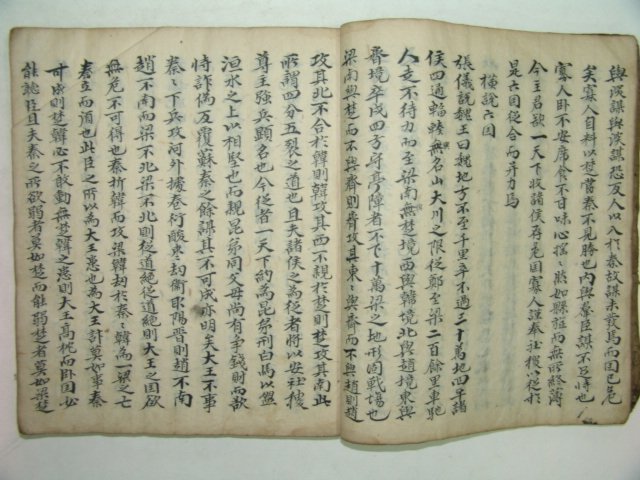 與深謀與深謀恐反人以入於秦故謀未發而國已危
矣寡人自料以楚當秦不見勝也內與羣臣謀不足恃也
寡人臥不安席食不甘味心搖〻然如懸旌而無所終薄
今主君欲一天下收諸侯存危國寡人謹奉社稷以從於
是六國從合而并力焉
橫說六國
張儀說魏王曰魏地方不至千里卒不過三十萬地四平諸
侯四通輻輳無名山大川之限從鄭至梁二百餘里車馳
人走不待力而至梁南與楚境西與韓境北與趙境東與
齊境卒戍四方守亭障者不下十萬梁之地形固戰場也
梁南與楚而不與齊則齊攻其東〻與齊而不與趙則趙
攻其北不合於韓則韓攻其西不親於楚則楚攻其南此
所謂四分五裂之道也且夫諸侯之爲從者將以安社稷
尊主強兵顯名也今從者一天下約爲昆弟刑白馬以盟
洹水之上以相堅也而親昆弟同父母尚有爭錢財而欲
恃詐僞反覆蘇秦之餘謀其不可成亦明矣大王不事
秦〻下兵攻河外據卷衍酸棗劫衛取陽晉則趙不南
趙不南而梁不北梁不北則從道絕從道絕則大王之國欲
無危不可得也秦折韓而攻梁韓刼於秦〻韓爲一梁之亡
可立而須也此臣之所以爲大王患也爲大王計莫如事秦
事秦則楚韓必不敢動無楚韓之患則大王高枕而臥國必
無憂矣且夫秦之所欲弱者莫如楚而能弱楚者莫如梁楚